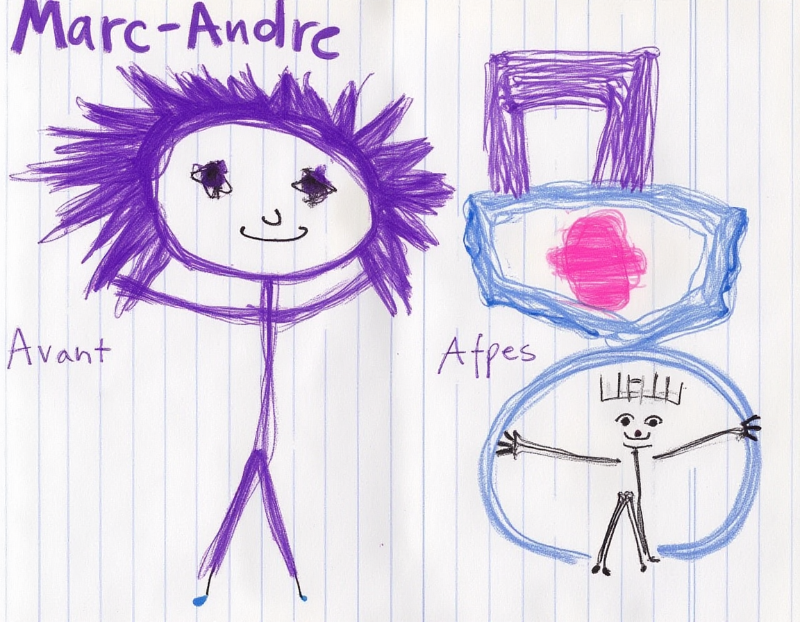 Marc-Andre
Avant
Afpes